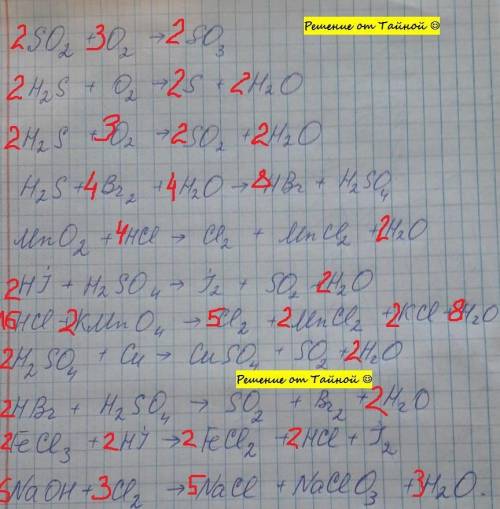 Решение от Тайной ☺
2SO₂ + 3O₂ → 2SO₃
2H₂S + O₂ → 2S + 2H₂O
2H₂S + 3O₂ → 2SO₂ + 2H₂O
H₂S + 4Br₂ + 4H₂O → 8HBr + H₂SO₄
MnO₂ + 4HCl → Cl₂ + MnCl₂ + 2H₂O
2HJ + H₂SO₄ → J₂ + SO₂ + 2H₂O
16HCl + 2KMnO₄ → 5Cl₂ + 2MnCl₂ + 2KCl + 8H₂O
2H₂SO₄ + Cu → CuSO₄ + SO₂ + 2H₂O
Решение от Тайной ☺
2HBr + H₂SO₄ → SO₂ + Br₂ + 2H₂O
2FeCl₃ + 2HJ → 2FeCl₂ + 2HCl + J₂
6NaOH + 3Cl₂ → 5NaCl + NaClO₃ + 3H₂O.